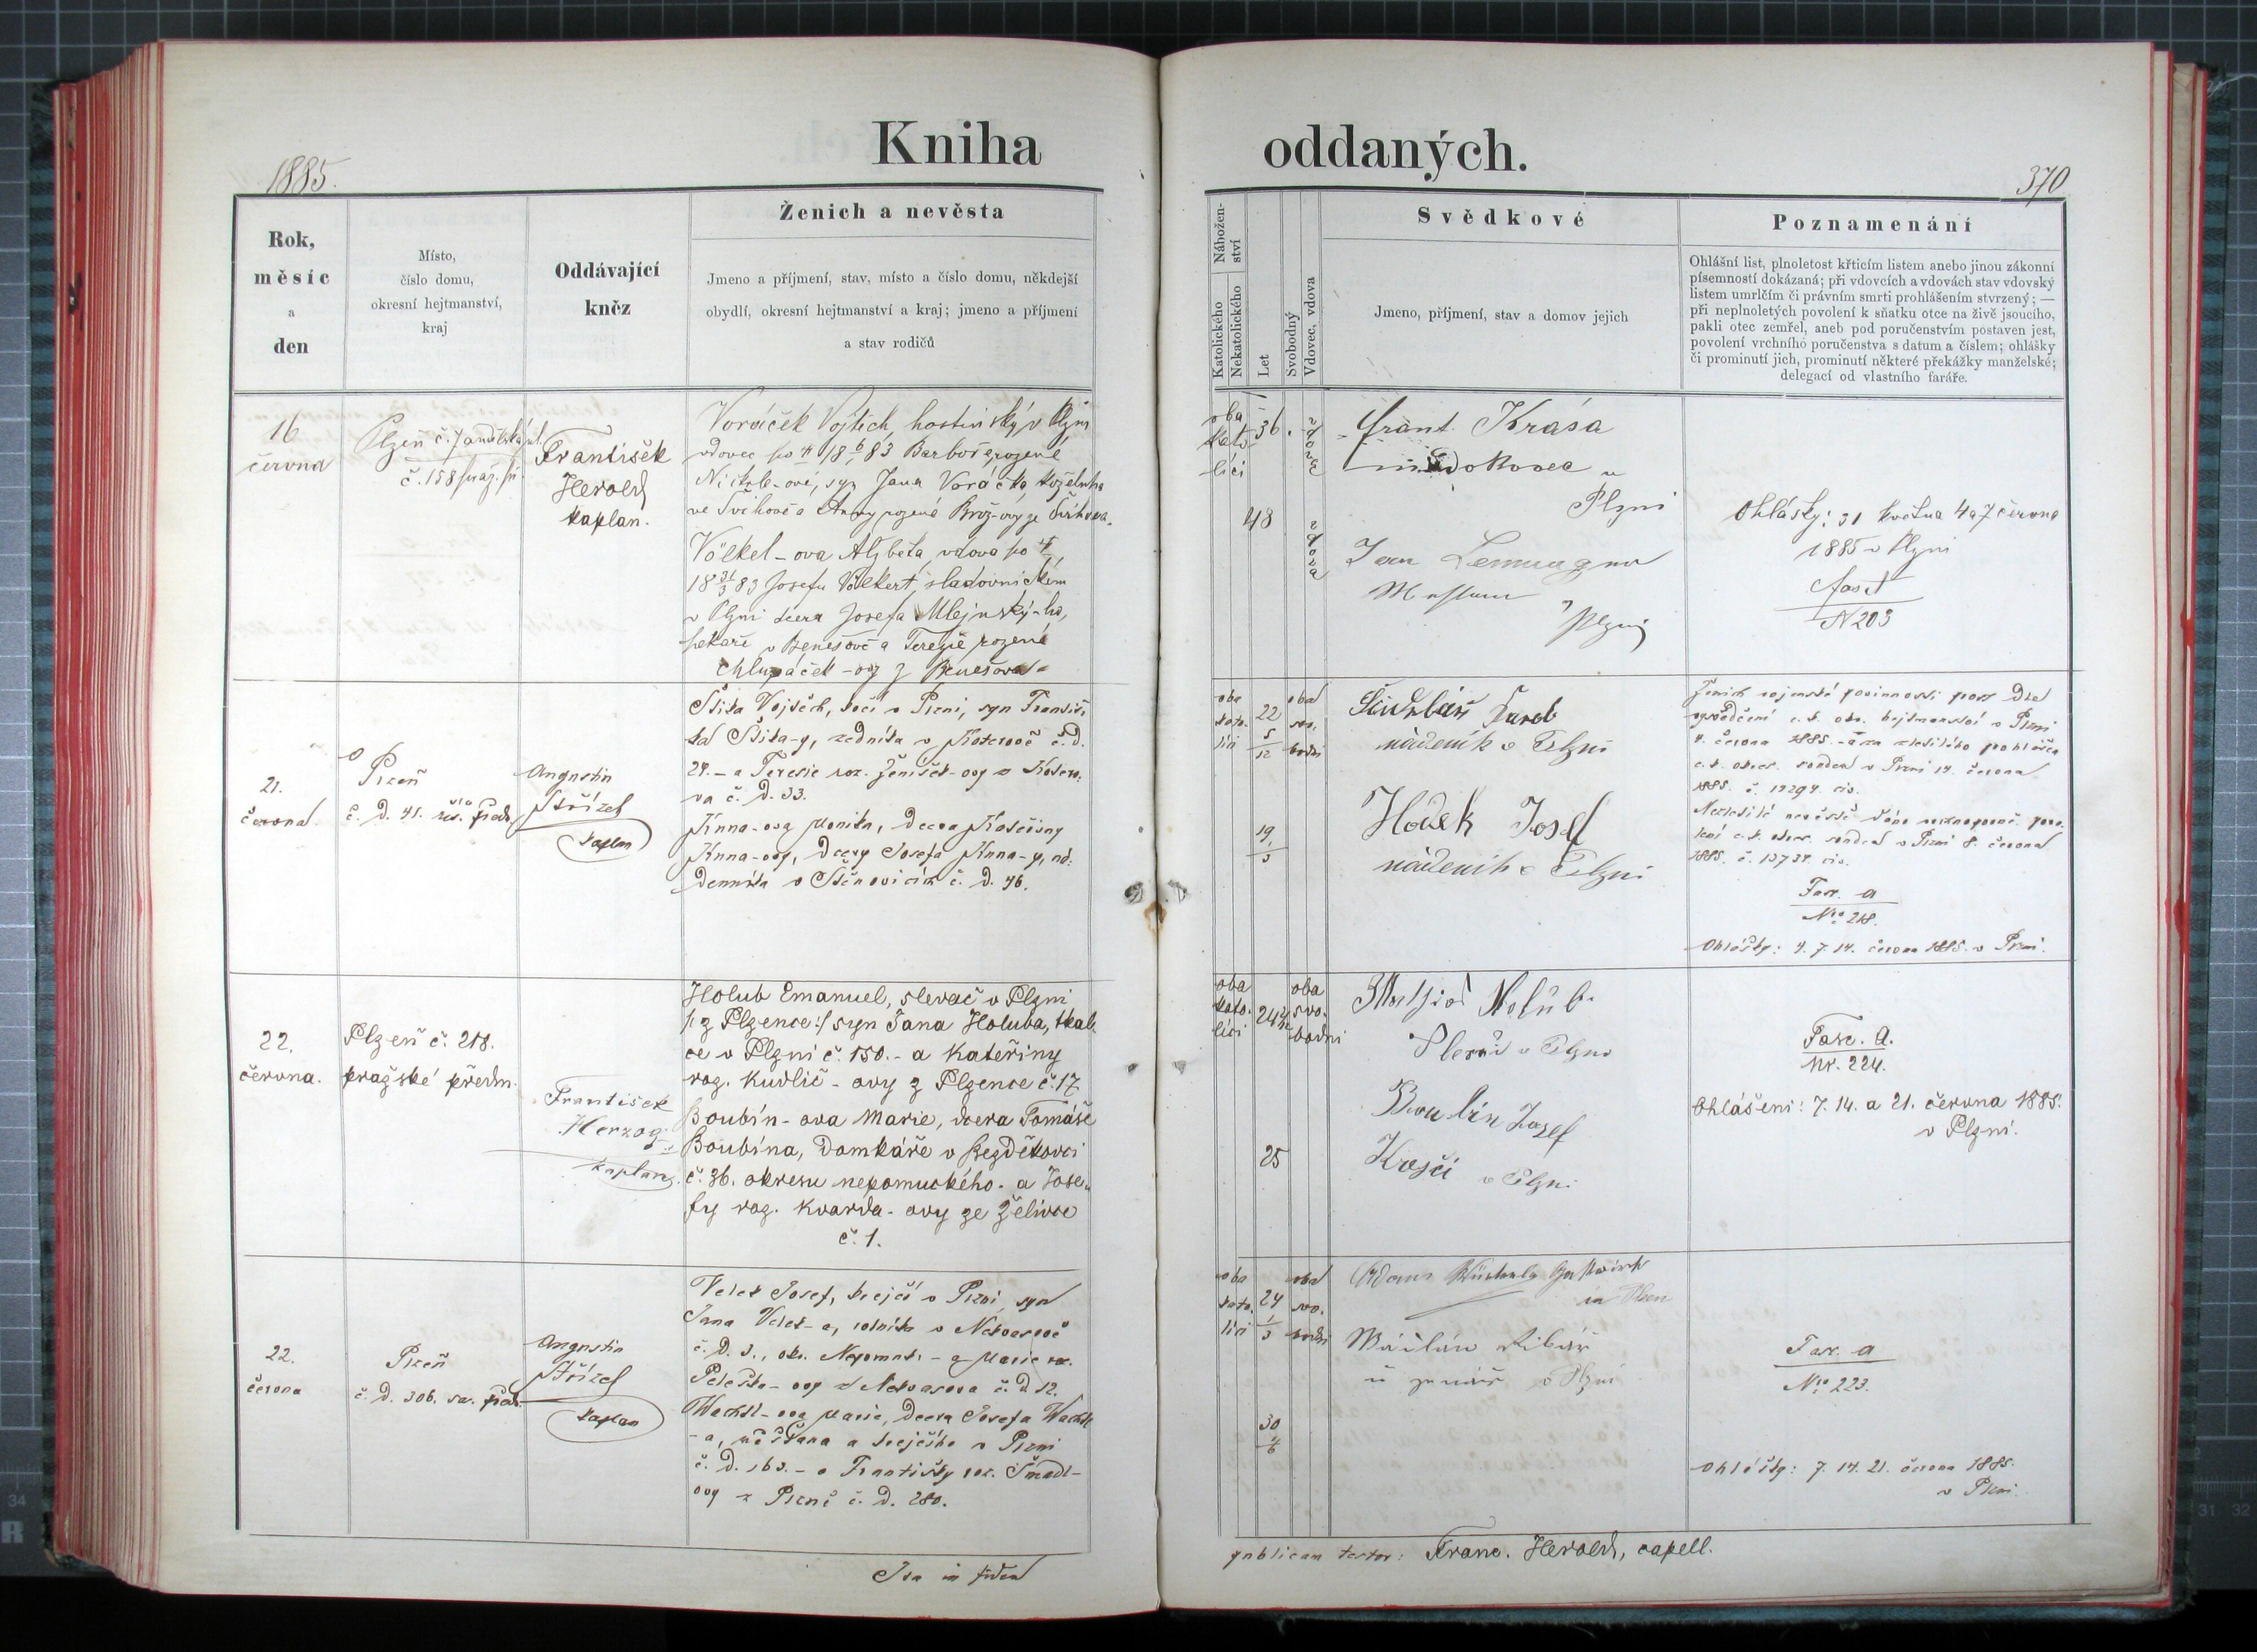 Kniha oddaných.
1885.
370
Rok,
měsíc
a
den
Místo,
číslo domu,
okresní hejtmanství,
kraj
Oddávající
kněz
Ženich a nevěsta
Jmeno a příjmení, stav, místo a číslo domu, někdejší
obydlí, okresní hejtmanství a kraj; jmeno a příjmení
a stav rodičů
Nábožen-
ství
Katolického
Nekatolického
Let
Svobodný
Vdovec, vdova
Svědkové
Jmeno, příjmení, stav a domov jejich
Poznamenání
Ohlášní list, plnoletost křticím listem anebo jinou zákonní
písemností dokázaná; při vdovcích a vdovách stav vdovský
listem umrlčím či právním smrti prohlášením stvrzený; —
při neplnoletých povolení k sňatku otce na živě jsoucího,
pakli otec zemřel, aneb pod poručenstvím postaven jest,
povolení vrchního poručenstva s datum a číslem; ohlášky
či prominutí jich, prominutí některé překážky manželské;
delegací od vlastního faráře.
16
června
Plzeň č. 7
č. 158
František
Herold
kaplan.
Voráček Vojtěch, hostinský v Plzni
vdovec po 18 83 Barboře, rozené
syn Jana Voráčka
ve Švihově a Anny rozené Brož-ovy ze Švihova.
Völkel-ova Alžběta, vdova po
18 83 Josefu Völkert, sladovnickém
v Plzni dcera Josefa Mlejnský-ho,
pekaře v Benešově a Terezie rozené
Chlupáček-ovy z Benešova
oba
kato-
líci
36
vdovec
48
vdova
Frant. Krása
v
Plzni
Jan
Plzni
Ohlášky: 31 května 4 a 7 června
1885 v Plzni
Fasc A
N 203
21.
června
Plzeň
č. d. 41.
Augustin
Střízel
kaplan
Šiška Vojtěch, kočí v Plzni, syn Františ-
ka Šiška-y, zedníka v Koterově č. d.
24. - a Terezie roz. Ženíšek-ovy z Kotero-
va č. d. 33.
Kuna-ova Monika, dcera Kateřiny
Kuna-ovy, dcery Josefa Kuna-y, ná-
denníka v Štěnovicích č. d. 46.
oba
kato.
líci
22
5
12
oba
svo.
bodni
19
1
3
Karel
nádeník v Plzni
Hodek Josef
nádeník v Plzni
Ženich vojenské povinnosti prost dle
vysvědčení c. k. okr. hejtmanství v Plzni
4. června 1885. - a za zletilého prohlášen
c. k. okres. soudem v Plzni 14. června
1885. č. 14294. civ.
Nezletilé nevěstě dáno vrchnoporuč. povo-
lení c. k. okres. soudem v Plzni 8. června
1885. č. 13734. civ.
Fasc. A
Nro 218.
Ohlášky: 4. 7. 14. června 1885. v Plzni.
22.
června.
Plzeň č. 218.
pražské předm.
František
Herzog
kaplan.
Holub Emanuel, slevač v Plzni
/: z Plzence :/ syn Jana Holuba, tkal-
ce v Plzni č. 150. - a Kateřiny
roz. Kudlič-ovy z Plzence č. 17
Boubín-ova Marie, dcera Tomáše
Boubína, domkáře v Bezděkovci
č. 36. okresu nepomuckého. a Jose-
fy roz. Kvarda-ovy ze Želivce
č. 1.
oba
kato.
líci
24
oba
svo.
bodni
25
Holub
v Plzni
Boubín Josef
Krejčí v Plzni
Fasc. A.
Nr. 224.
Ohlášeni: 7. 14. a 21. června 1885.
v Plzni.
22.
června
Plzeň
č. d. 306. sa. předm.
Augustin
Střízel
kaplan
Velet Josef, krejčí v Plzni, syn
Jana Velet-a, rolníka v Nekvasově
č. d. 3., okr. Nepomuk - a Marie roz.
z Nekvasova č. d. 12.
Wachtl-ova Marie, dcera Josefa Wachtl
-a, měšťana a krejčího v Plzni
č. d. 163. - a Františky roz. Šmadl-
ovy z Plzně č. d. 280.
oba
kato.
líci
24
1
3
oba
svo.
bodni
30
Adam
in Pilsen
v Plzni
Fasc. A
Nro 223.
Ohlášky: 7. 14. 21. června 1885.
v Plzni.
Ita in fidem
publicam testor: Franc. Herold, capell.